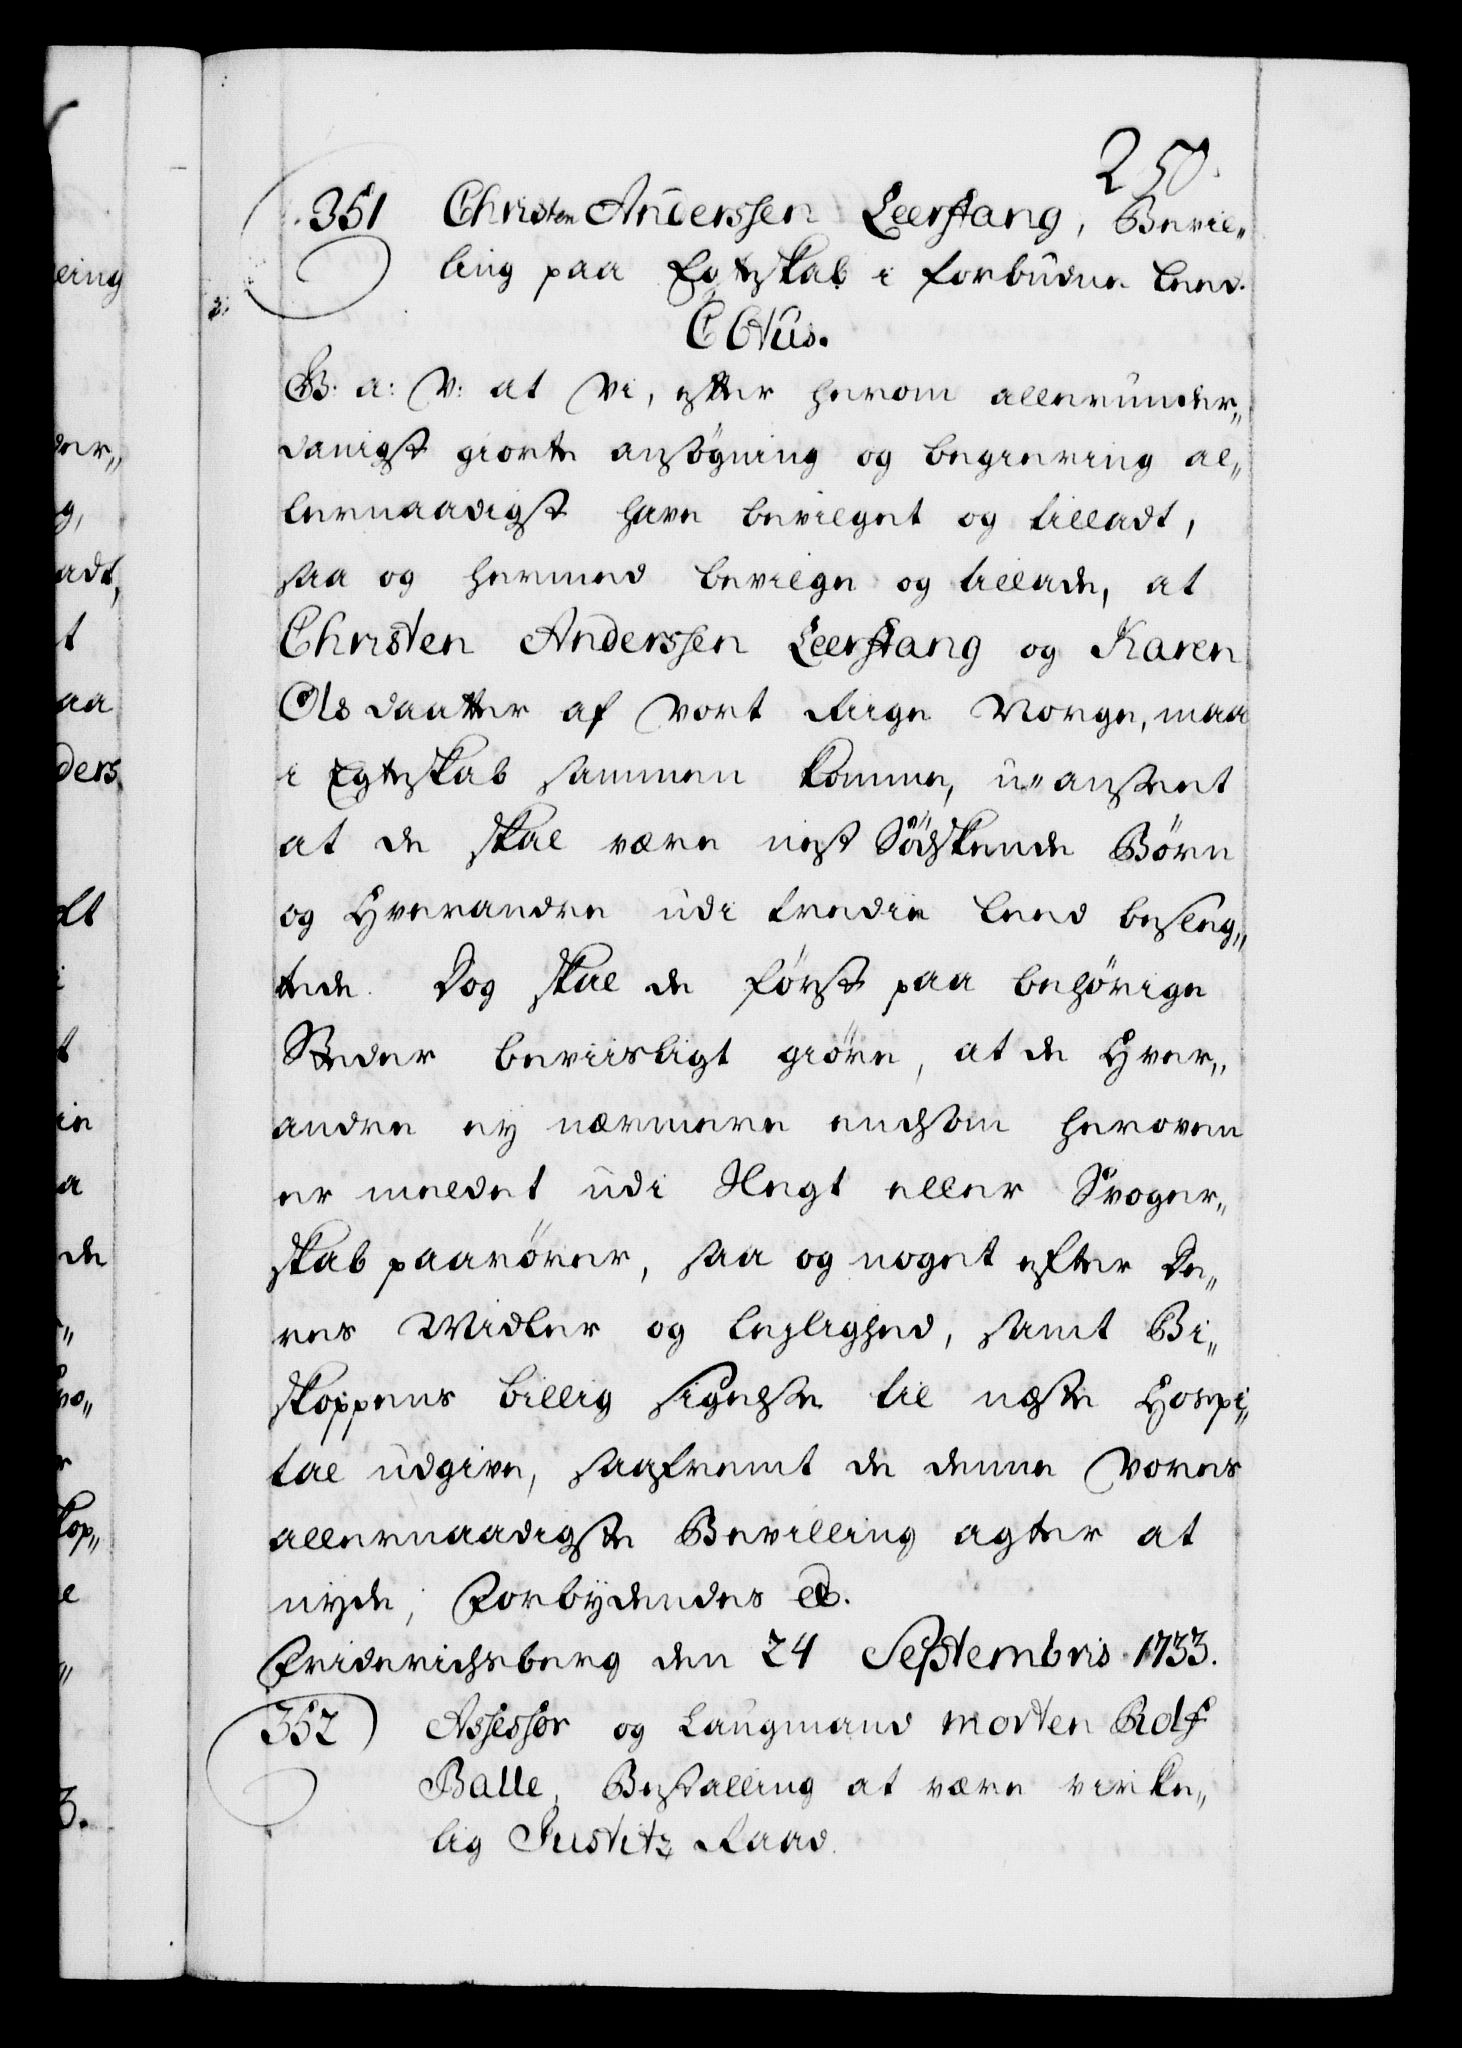 250.
351 Christen Anderssen Leerstang, Bevil„
ling paa Egteskab i forbudne Leed.
C 6tus.
G. a: V: at Vi, efter herom allerunder„
danigst giorte ansøgning og begiering al„
lernaadigst have bevilget og tilladt,
saa og hermed bevilge og tillade, at
Christen Anderssen Leerstang og Karen
Olsdaatter af vort Rige Norge, maa
i Egteskab sammen komme, u„anseet
at de skal være nest Södskende Börn
og Hverandre udi tredie Leed besleg„
tede. Dog skal de först paa behörige
Steder beviisligt giöre, at de Hver„
andre ey nærmere endsom heroven
er meldet udi Slegt eller Svoger„
skab paarörer, saa og noget efter De„
res Midler og Lejlighed, samt Bi„
skoppens billig sigelse til neste Hospi„
tal udgive, saafremt de denne Vores
allernaadigste Bevilling agter at
nyde, Forbydendes etc.
Friderichsberg den 24 Septembris 1733.
352) Assessor og Laugmand Morten Rolf
Balle, Bestalling at være virke„
lig Justitz Raad.
eing
der„
g,
adt,
t
aa
ders
de
kop„
3.